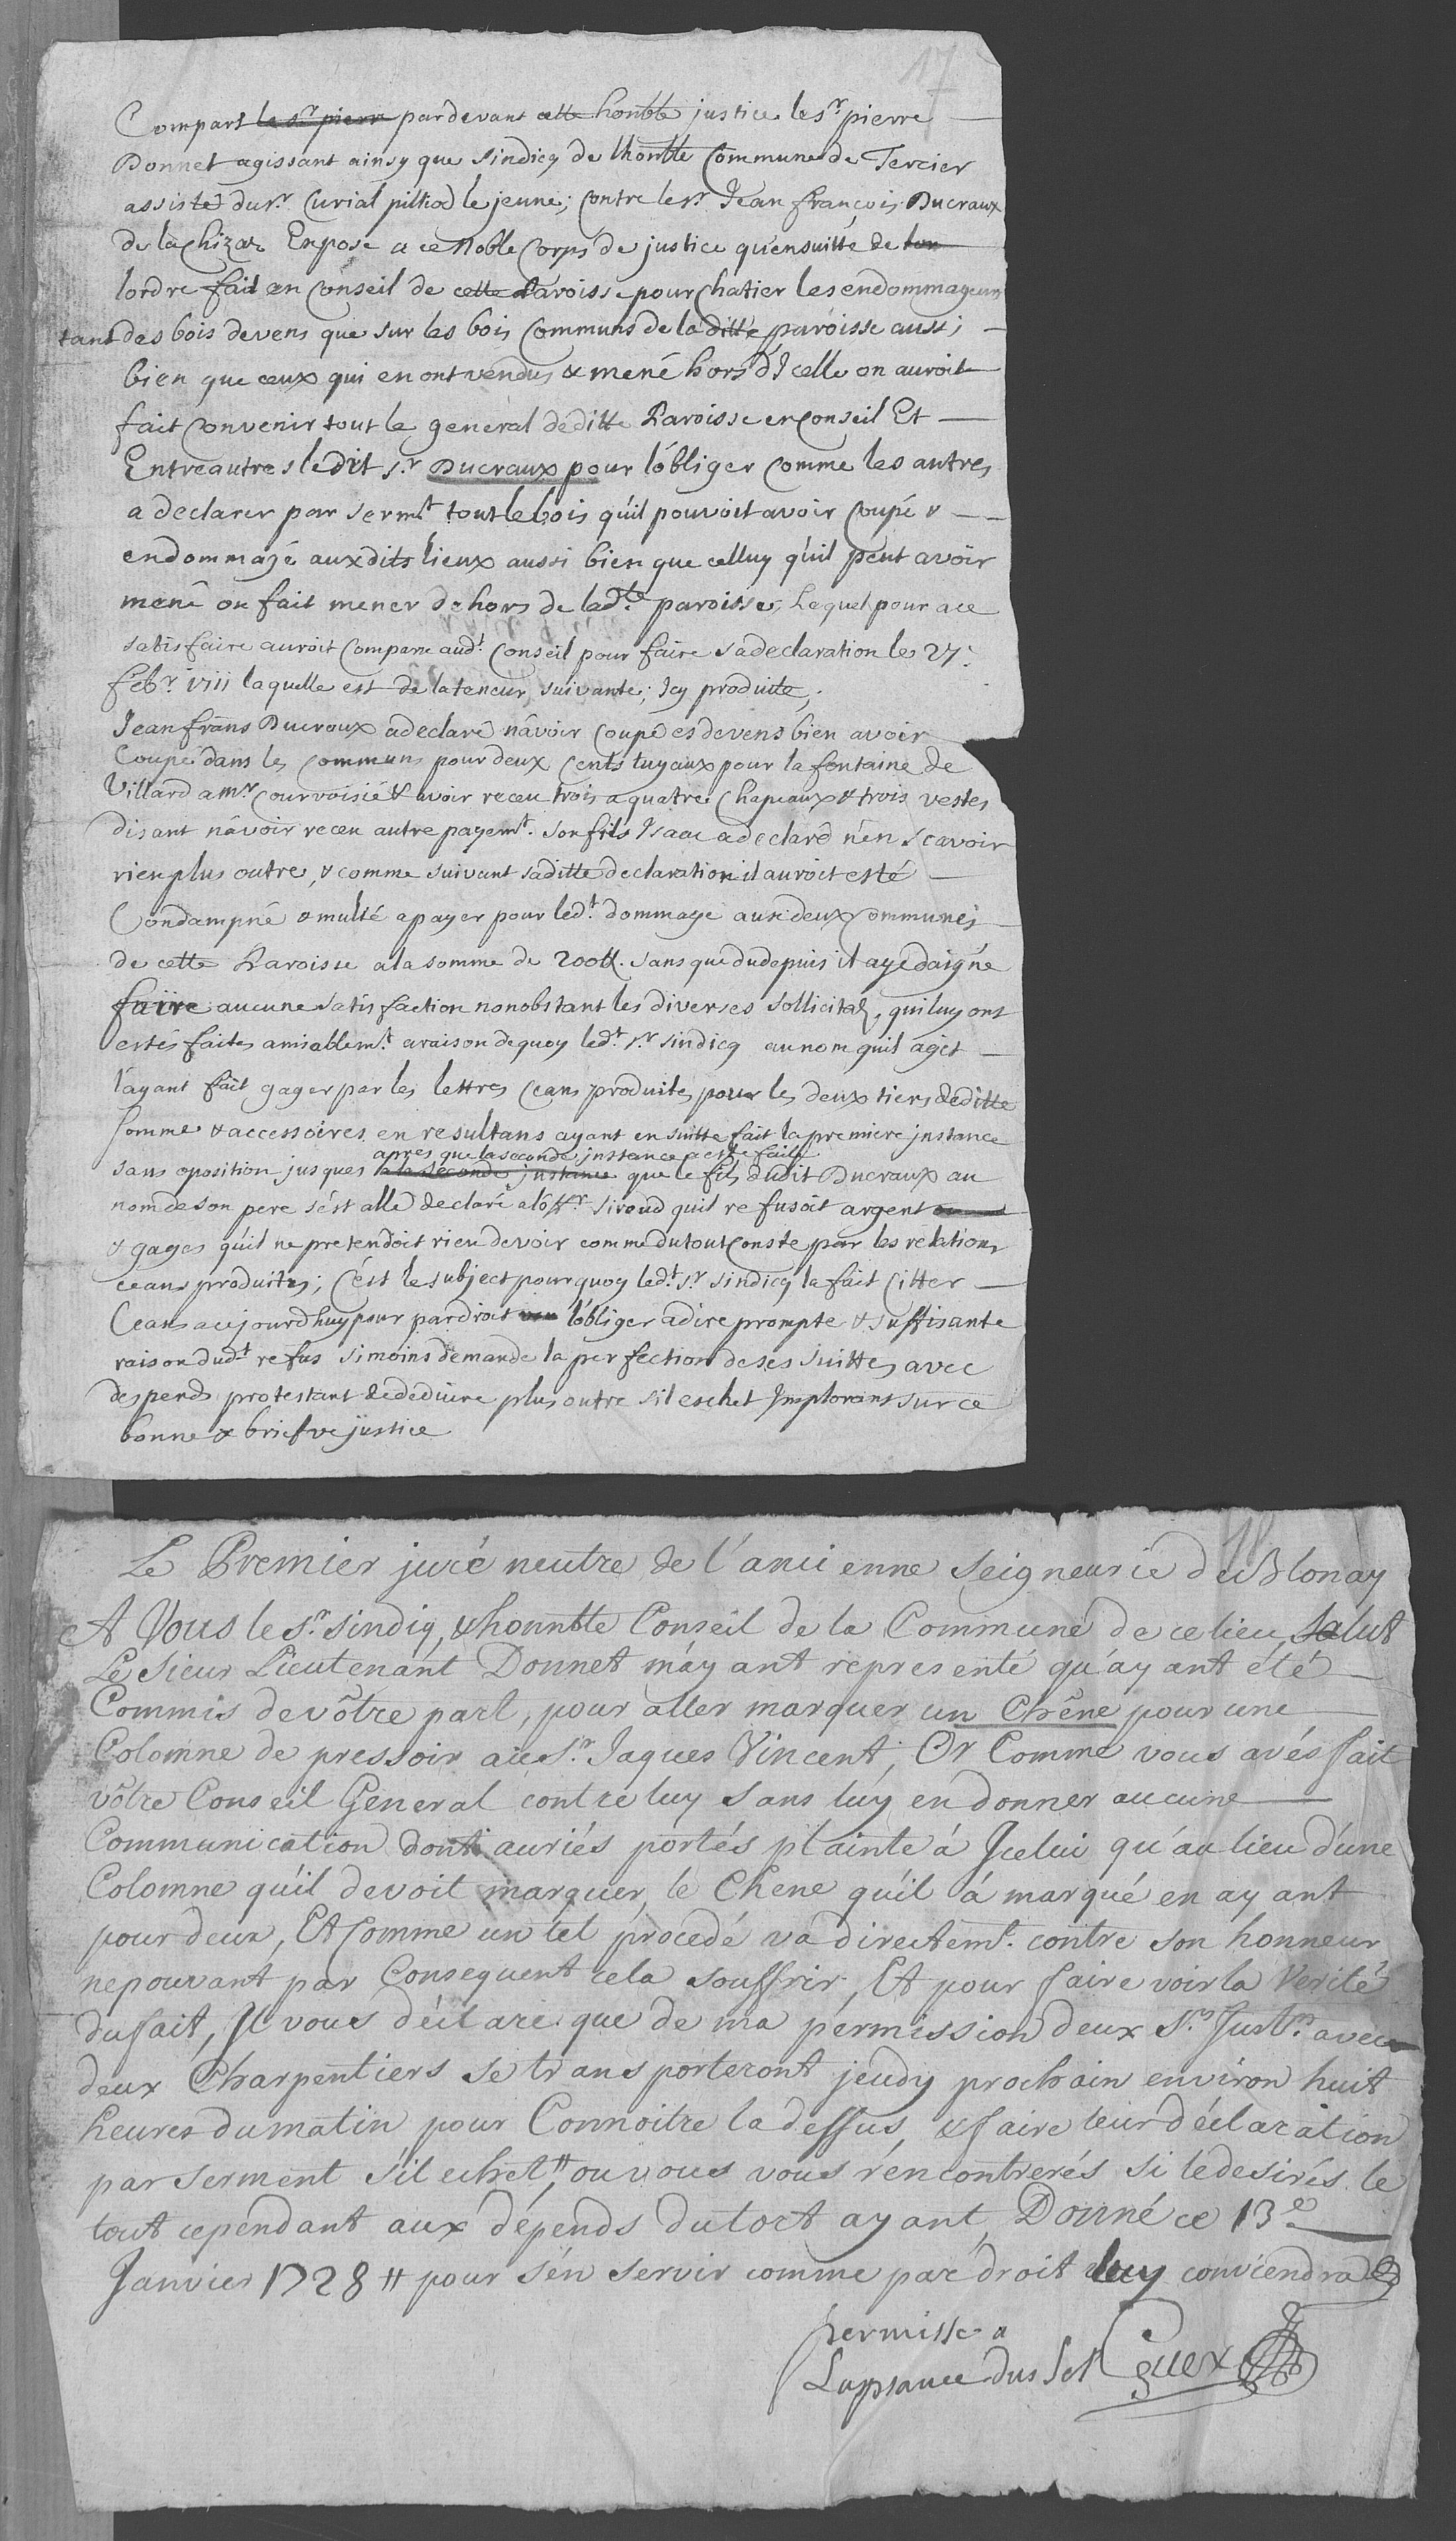 17
Compart le sr pierr pardevant cette honble justice le sr pierre
Donnet agissant ainsy que sindicq de lhonble Commune de Tercier
assisté du sr. Curial pilliod le jeune; contre le sr. Jean françois Ducraux
de la Chizaz Expose a ce Noble Corps de justice qu'ensuitte de
lordre fait en Conseil de cette Paroisse pour Chatier les endommageurs
tant des bois devens que sur les bois Communs de la ditte paroisse aussi
bien que ceux qui en ont vendus & mené hors d'Icelle on auroit
fait Convenir tout le general deditte Paroisse en Conseil Et
Entreautres ledit sr. Ducraux pour l'obliger comme les autres
a declarer par sermt. tout le bois qu'il pouvoit avoir Coupé &
endommagé auxdits lieux aussi bien que celluy qu'il peut avoir
mené ou fait mener dehors de ladte. paroisse; Lequel pour a ce
satisfaire auroit Comparu audt. Conseil pour faire sa declaration le 27:
febr. viii laquelle est de la teneur suivante; Icy produite;
Jean frans Ducroux a declaré n'avoir Coupé es devens bien avoir
Coupé dans les communs pour deux Cents tuyaux pour la fontaine de
Villard a mr. Courvoisié & avoir receu trois a quatre Chapeaux & trois vestes
disant n'avoir receu autre payemt. Son fils Isaac a declaré n'en scavoir
rien plus outre, & comme suivant saditte declaration il auroit esté
Condampné & multé a payer pour ledt. dommage aux deux Communes
de cette Paroisse a la somme de 200 ff. sans que dudepuis il aye daigné
faire aucune satisfaction nonobstant les diverses sollicita, qui luy ont
estés faites amiablemt. a raison dequoy ledt. sr sindicq au nom quil agit
l'ayant fait gager par les lettres Ceans produites pour les deux tiers deditte
somme & accessoires en resultans ayant en suitte fait la premiere jnstance
apres que la seconde jnstance a esté faite
sans oposition jusques a la seconde jnstance que le fils dudit Ducraux au
nom de son pere s'est allé declaré a lo ffr. Siroud quil refusoit argent
& gages qu'il ne pretendoit rien devoir comme du tout Conste par les relations
ceans produites; C'est le subject pourquoy ledt. sr. sindicq la fait Citter
Ceans a cejourd'huy pour par droit l'obliger a dire prompte & suffisante
raison dudt refus si moins demande la perfection de ses suittes avec
despends protestant de deduire plus outre sil eschet Implorant sur ce
bonne & briefve justice
18
Le Premier juré neutre de l'anci enne Seigneurie de Blonay
A Vous le sr. sindiq, & honnble Conseil de la Commune de ce lieu, Salut
Le Sieur Lieutenant Donnet m'ay ant representé qu'ay ant été
Commis de vôtre part, pour aller marquer un Chêne pour une
Colomne de pressoir au sr. Jaques Vincent; Or Comme vous avés fait
vôtre Conseil General contre luy sans luy en donner aucune
Communication dont auriés portés plainte á Jcelui qu'au lieu d'une
Colomne qu'il devoit marquer, le Chene qu'il á marqué en ay ant
pour deux, Et Comme un tel procedé va directemt. contre son honneur
ne pouvant par Consequent cela souffrir, Et pour faire voir la Verité
du fait, Jl vous déclare que de ma permission deux Srs Justrs avec
deux Charpentiers se trans porteront jeudy prochain environ huit
heures du matin pour Connoitre la dessus, & faire leur déclaration
par serment s'il echet # ou vous vous rencontrerés si le desirés le
tout cependant aux dépends du tort ayant, Donné ce 13e
Janvier 1728 # pour s'en servir comme par droit luy conviendra
permisse a
Lapsance dus Sel Guex